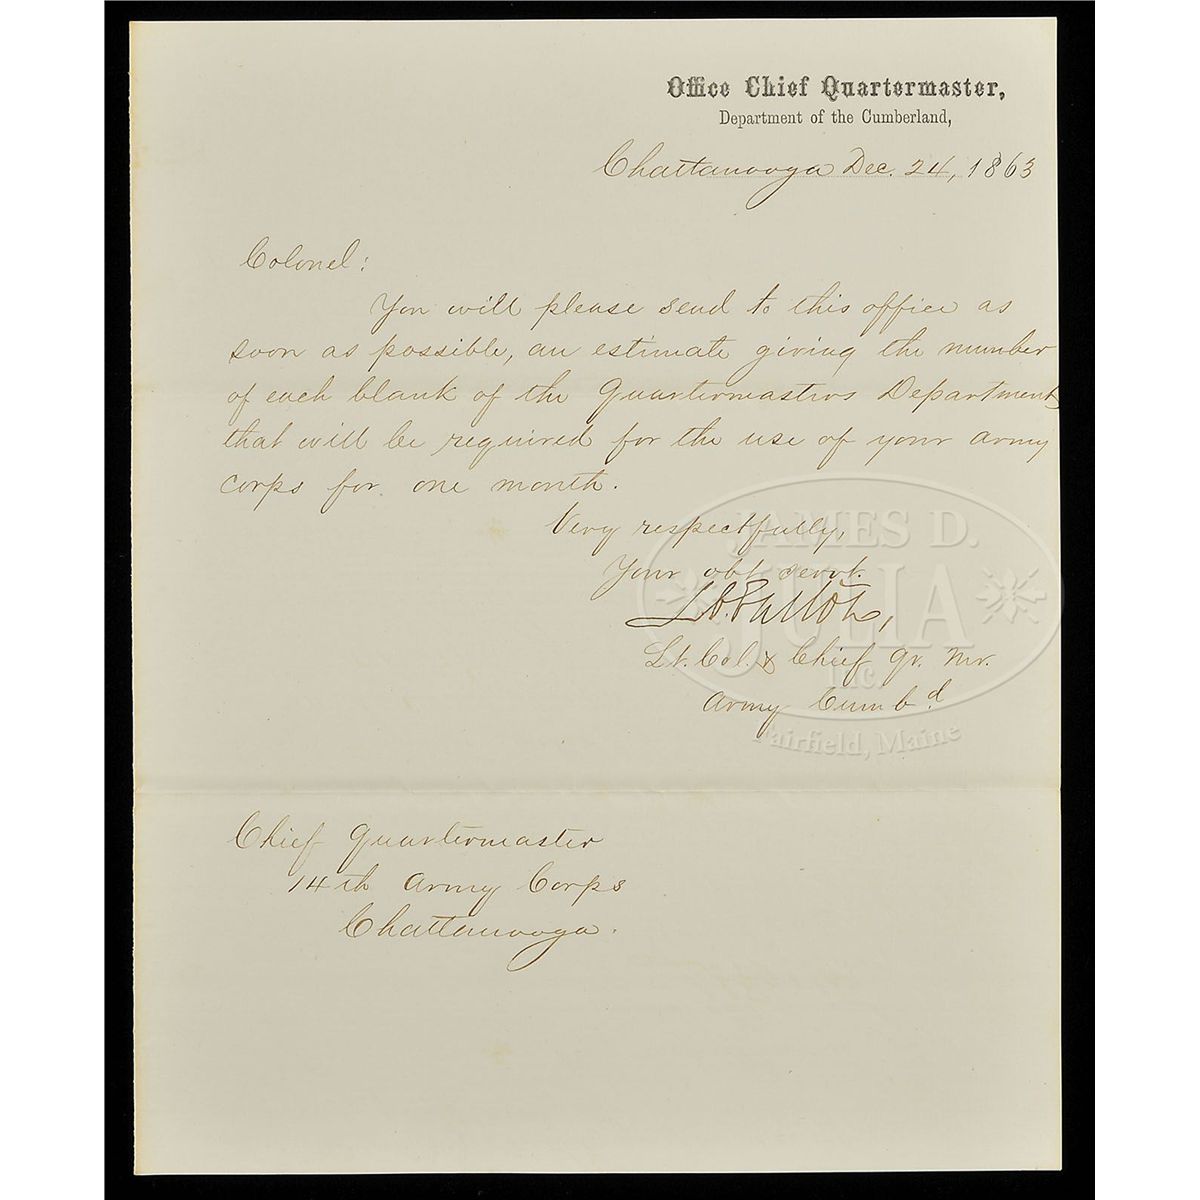 Office Chief Quartermaster,
Department of the Cumberland,
Chattanooga Dec. 24, 1863
Colonel:
You will please send to this office as
soon as possible, an estimate giving the number
of each blank of the Quartermasters Department
that will be required for the use of your army
corps for one month.
Very respectfully,
Your obt servt.
Lt. Col. & Chief Qr. Mr.
Army Cumbd
Chief Quartermaster
14th Army Corps
Chattanooga.
JAMES D.
JULIA
Inc.
Fairfield, Maine